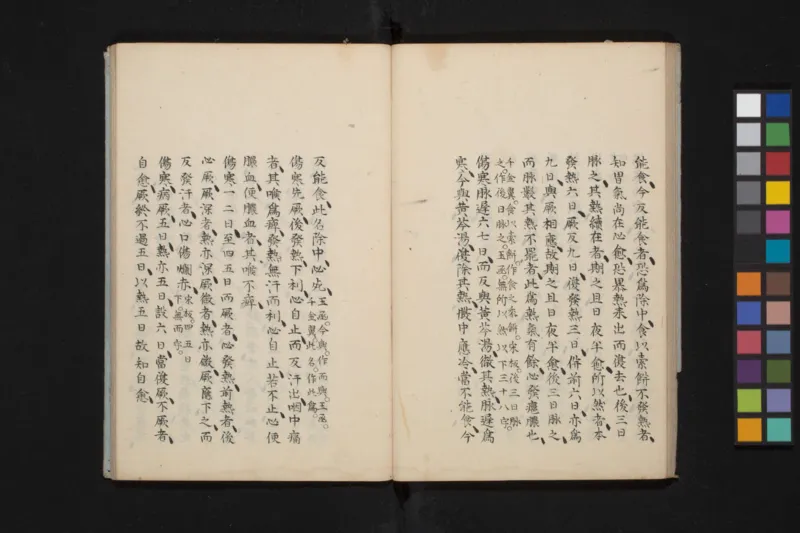 能食今反能食者恐爲除中食以索餅不發熱者
知胃氣尚在必愈恐暴熱來出而復去也後三日
脉之其熱續在者期之旦日夜半愈所以然者本
發熱六日厥反九日復發熱三日併前六日亦爲
九日與厥相應故期之旦日夜半愈後三日脉之
而脉數其熱不罷者此爲熱氣有餘必發癰膿也
千金翼食以索餅作食之索餅宋板後三日脉
之作後日脉之玉函無所以然以下三十八字
傷寒脉遲六七日而反與黄芩湯徹其熱脉遲爲
寒今與黄芩湯復除其熱腹中應冷當不能食今
反能食此名除中必死玉函今與作而與玉函
千金翼此名作此爲
傷寒先厥後發熱下利必自止而反汗出咽中痛
者其喉爲痺發熱無汗而利必自止若不止必便
膿血便膿血者其喉不痺
傷寒一二日至四五日而厥者必發熱前熱者後
必厥厥深者熱亦深厥微者熱亦微厥應下之而
反發汗者必口傷爛赤宋板四五日
下無而字
傷寒病厥五日熱亦五日設六日當復厥不厥者
自愈厥終不過五日以熱五日故知自愈